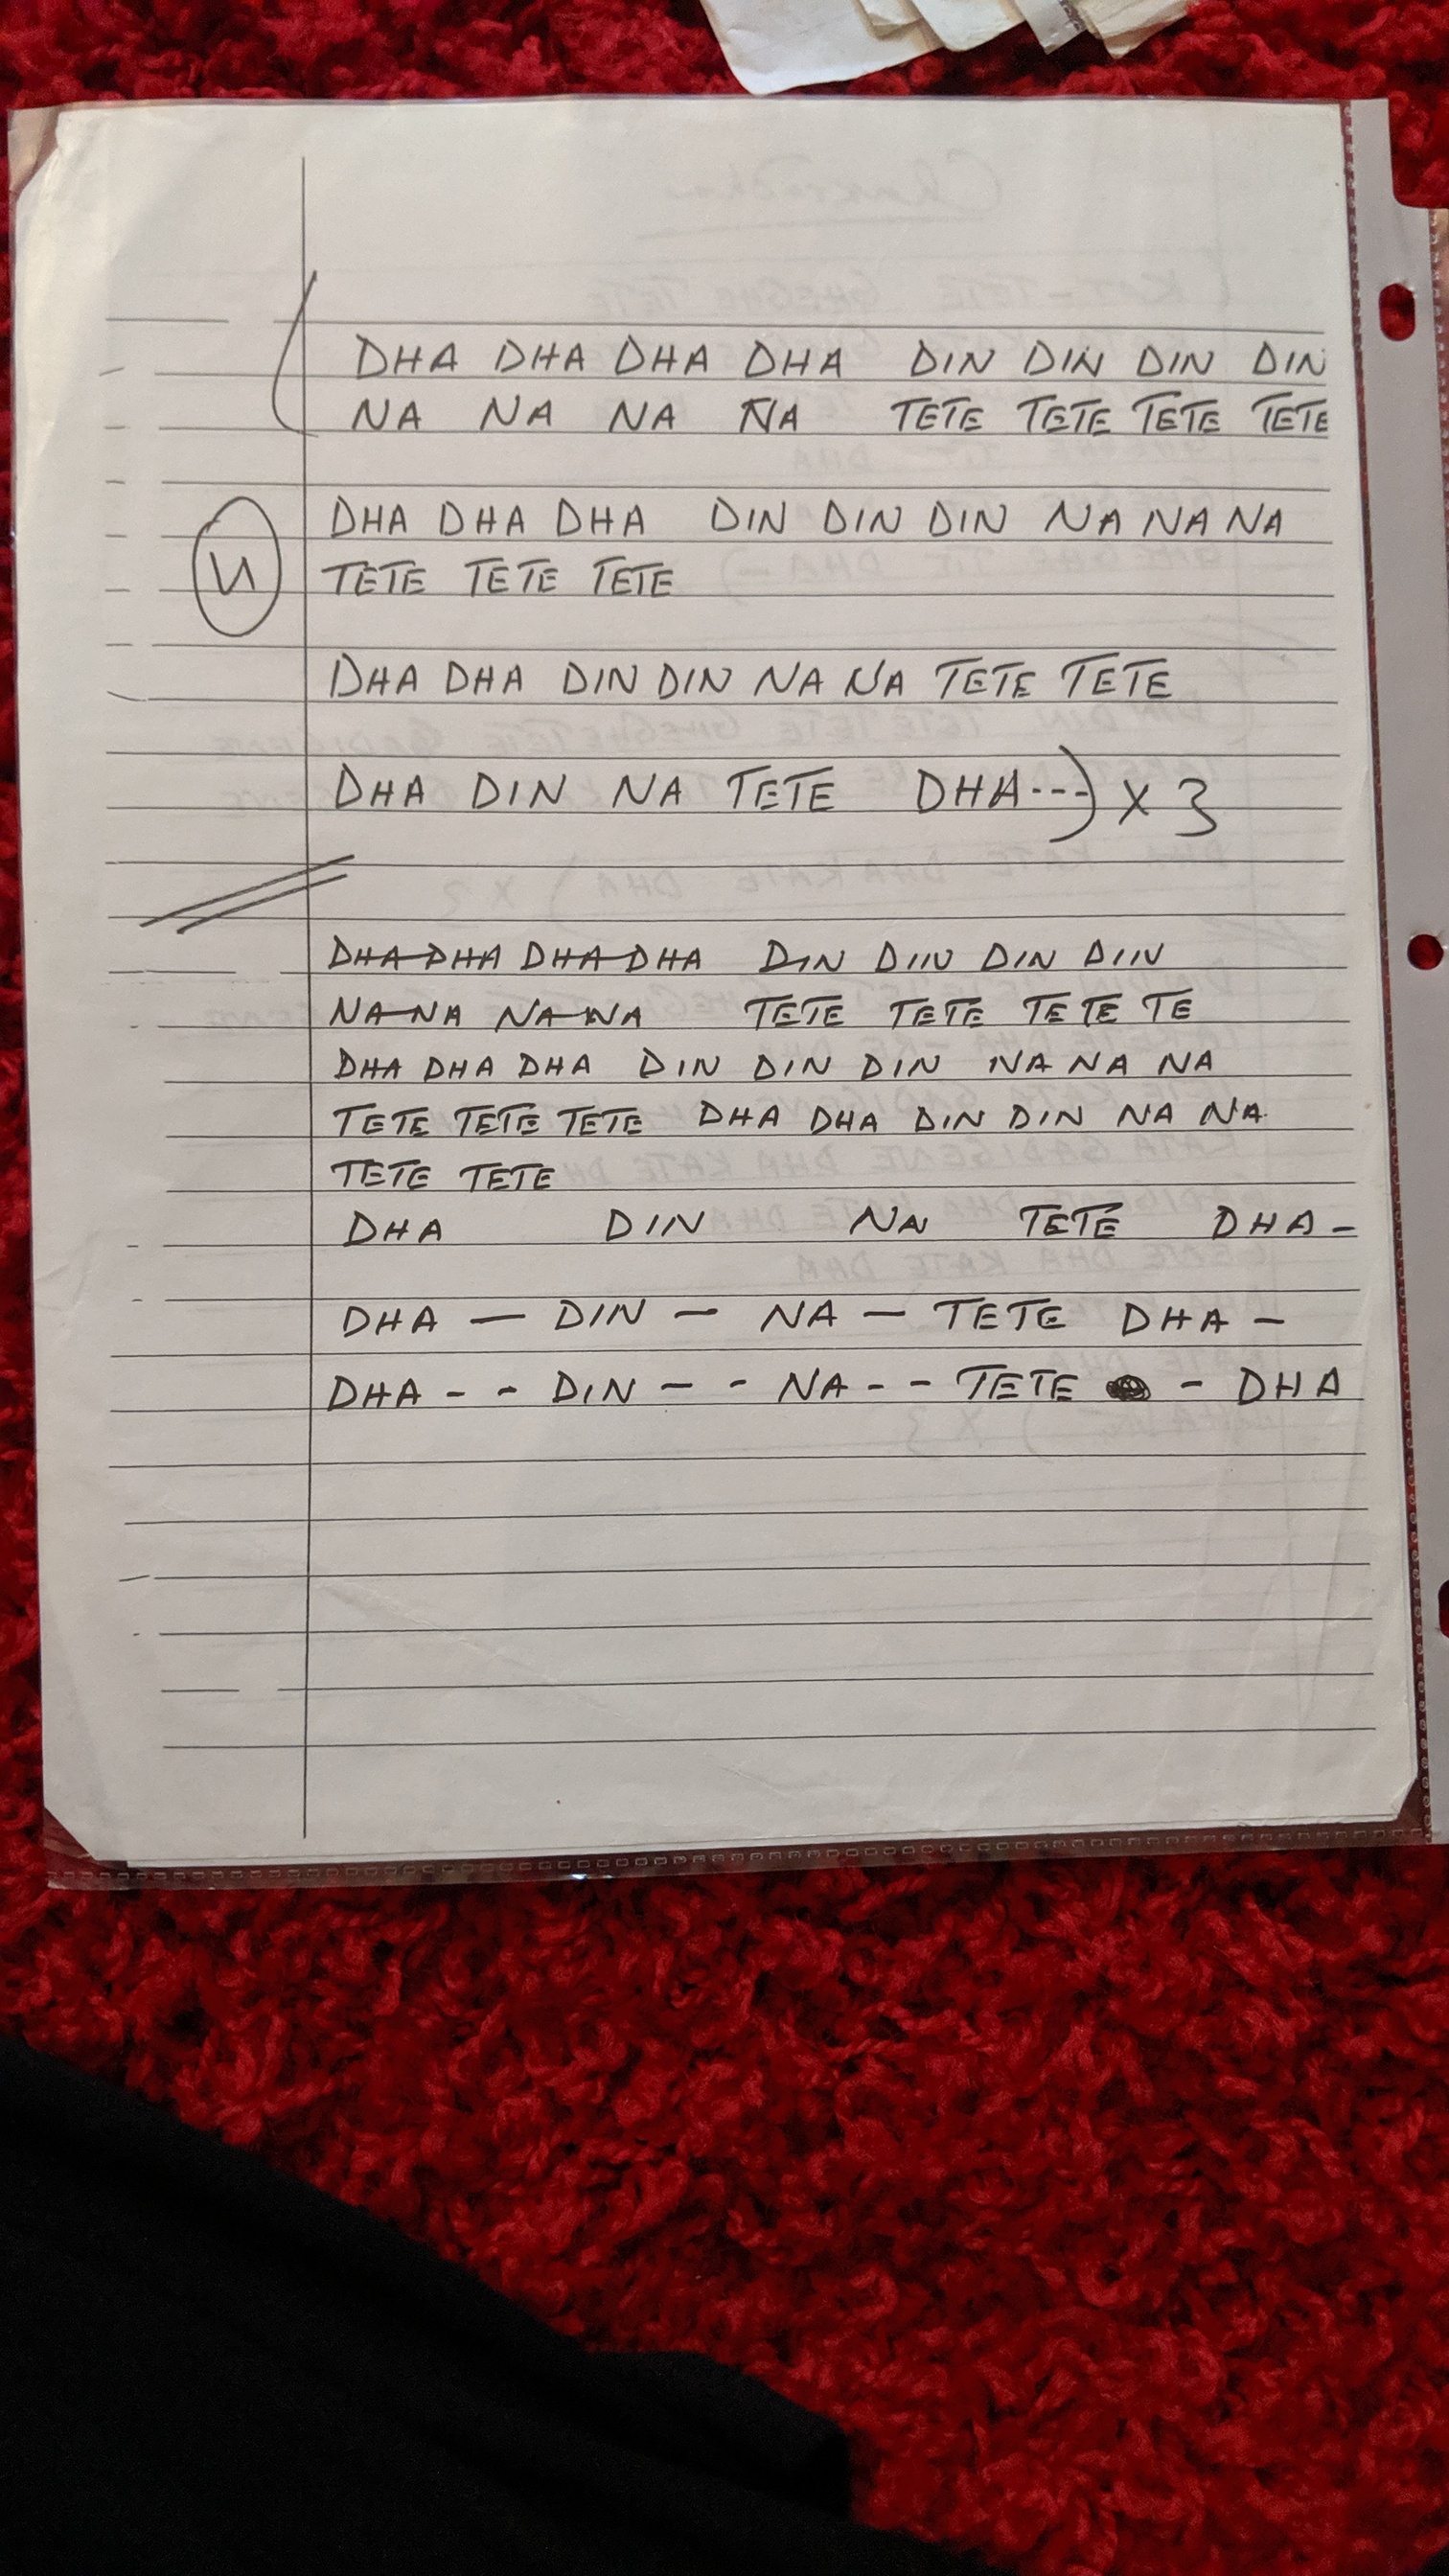 ( DHA DHA DHA DHA DIN DIN DIN DIN
NA NA NA NA TETE TETE TETE TETE
DHA DHA DHA DIN DIN DIN NA NA NA
TETE TETE TETE
DHA DHA DIN DIN NA NA TETE TETE
DHA DIN NA TETE DHA---) x 3
DHA-DHA DHA-DHA DIN DIN DIN DIN
NA-NA NA-NA TETE TETE TETE TE
DHA DHA DHA DIN DIN DIN NA NA NA
TETE TETE TETE DHA DHA DIN DIN NA NA
TETE TETE
DHA DIN NA TETE DHA-
DHA - DIN - NA - TETE DHA -
DHA - - DIN - - NA - - TETE - DHA